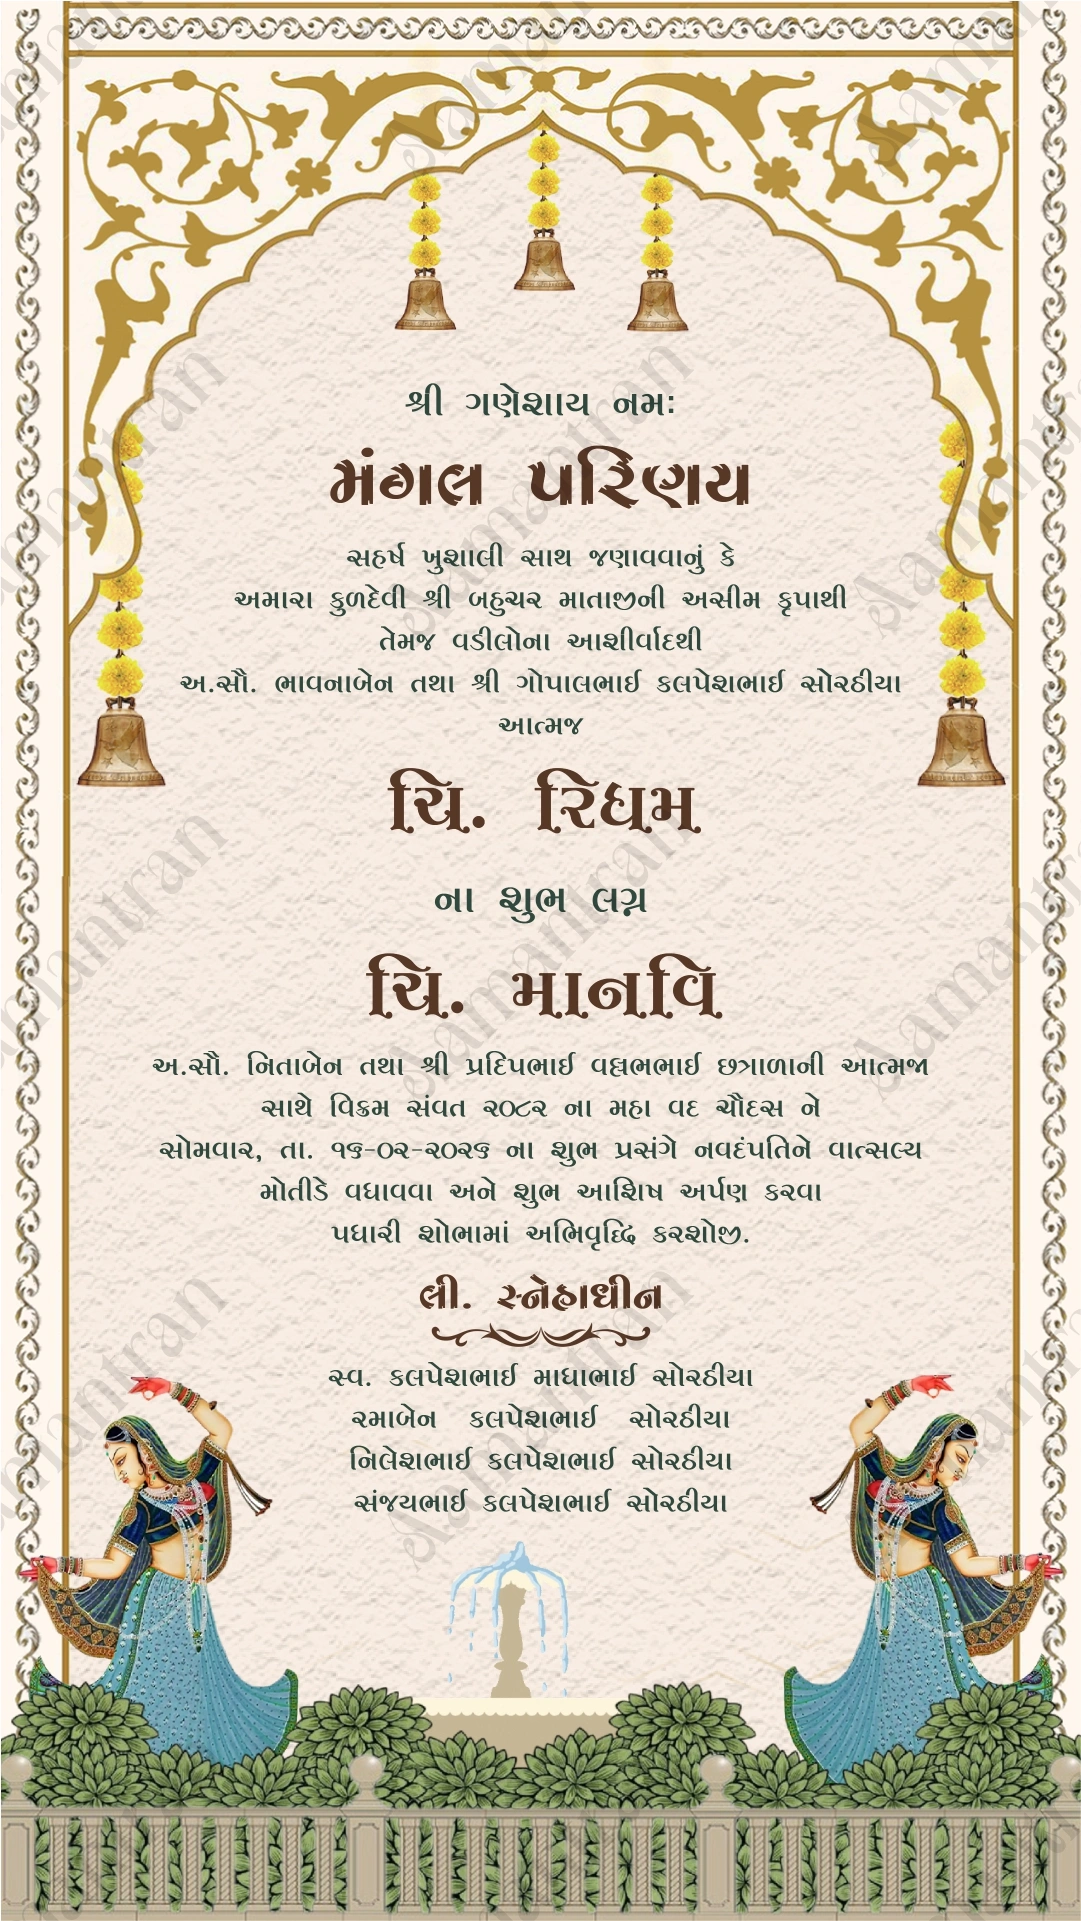 શ્રી ગણેશાય નમઃ
મંગલ પરિણય
સહર્ષ ખુશાલી સાથ જણાવવાનું કે
અમારા કુળદેવી શ્રી બહુચર માતાજીની અસીમ કૃપાથી
તેમજ વડીલોના આશીર્વાદથી
અ.સૌ. ભાવનાબેન તથા શ્રી ગોપાલભાઈ કલપેશભાઈ સોરઠીયા
આત્મજ
ચિ. રિધમ
ના શુભ લગ્ન
ચિ. માનવિ
અ.સૌ. નિતાબેન તથા શ્રી પ્રદિપભાઈ વલ્લભભાઈ છત્રાળાની આત્મજા
સાથે વિક્રમ સંવત ૨૦૮૨ ના મહા વદ ચૌદસ ને
સોમવાર, તા. ૧૬-૦૨-૨૦૨૬ ના શુભ પ્રસંગે નવદંપતિને વાત્સલ્ય
મોતીડે વધાવવા અને શુભ આશિષ અર્પણ કરવા
પધારી શોભામાં અભિવૃદ્ધિ કરશોજી.
લી. સ્નેહાધીન
સ્વ. કલપેશભાઈ માધાભાઈ સોરઠીયા
રમાબેન કલપેશભાઈ સોરઠીયા
નિલેશભાઈ કલપેશભાઈ સોરઠીયા
સંજયભાઈ કલપેશભાઈ સોરઠીયા
Aamantran